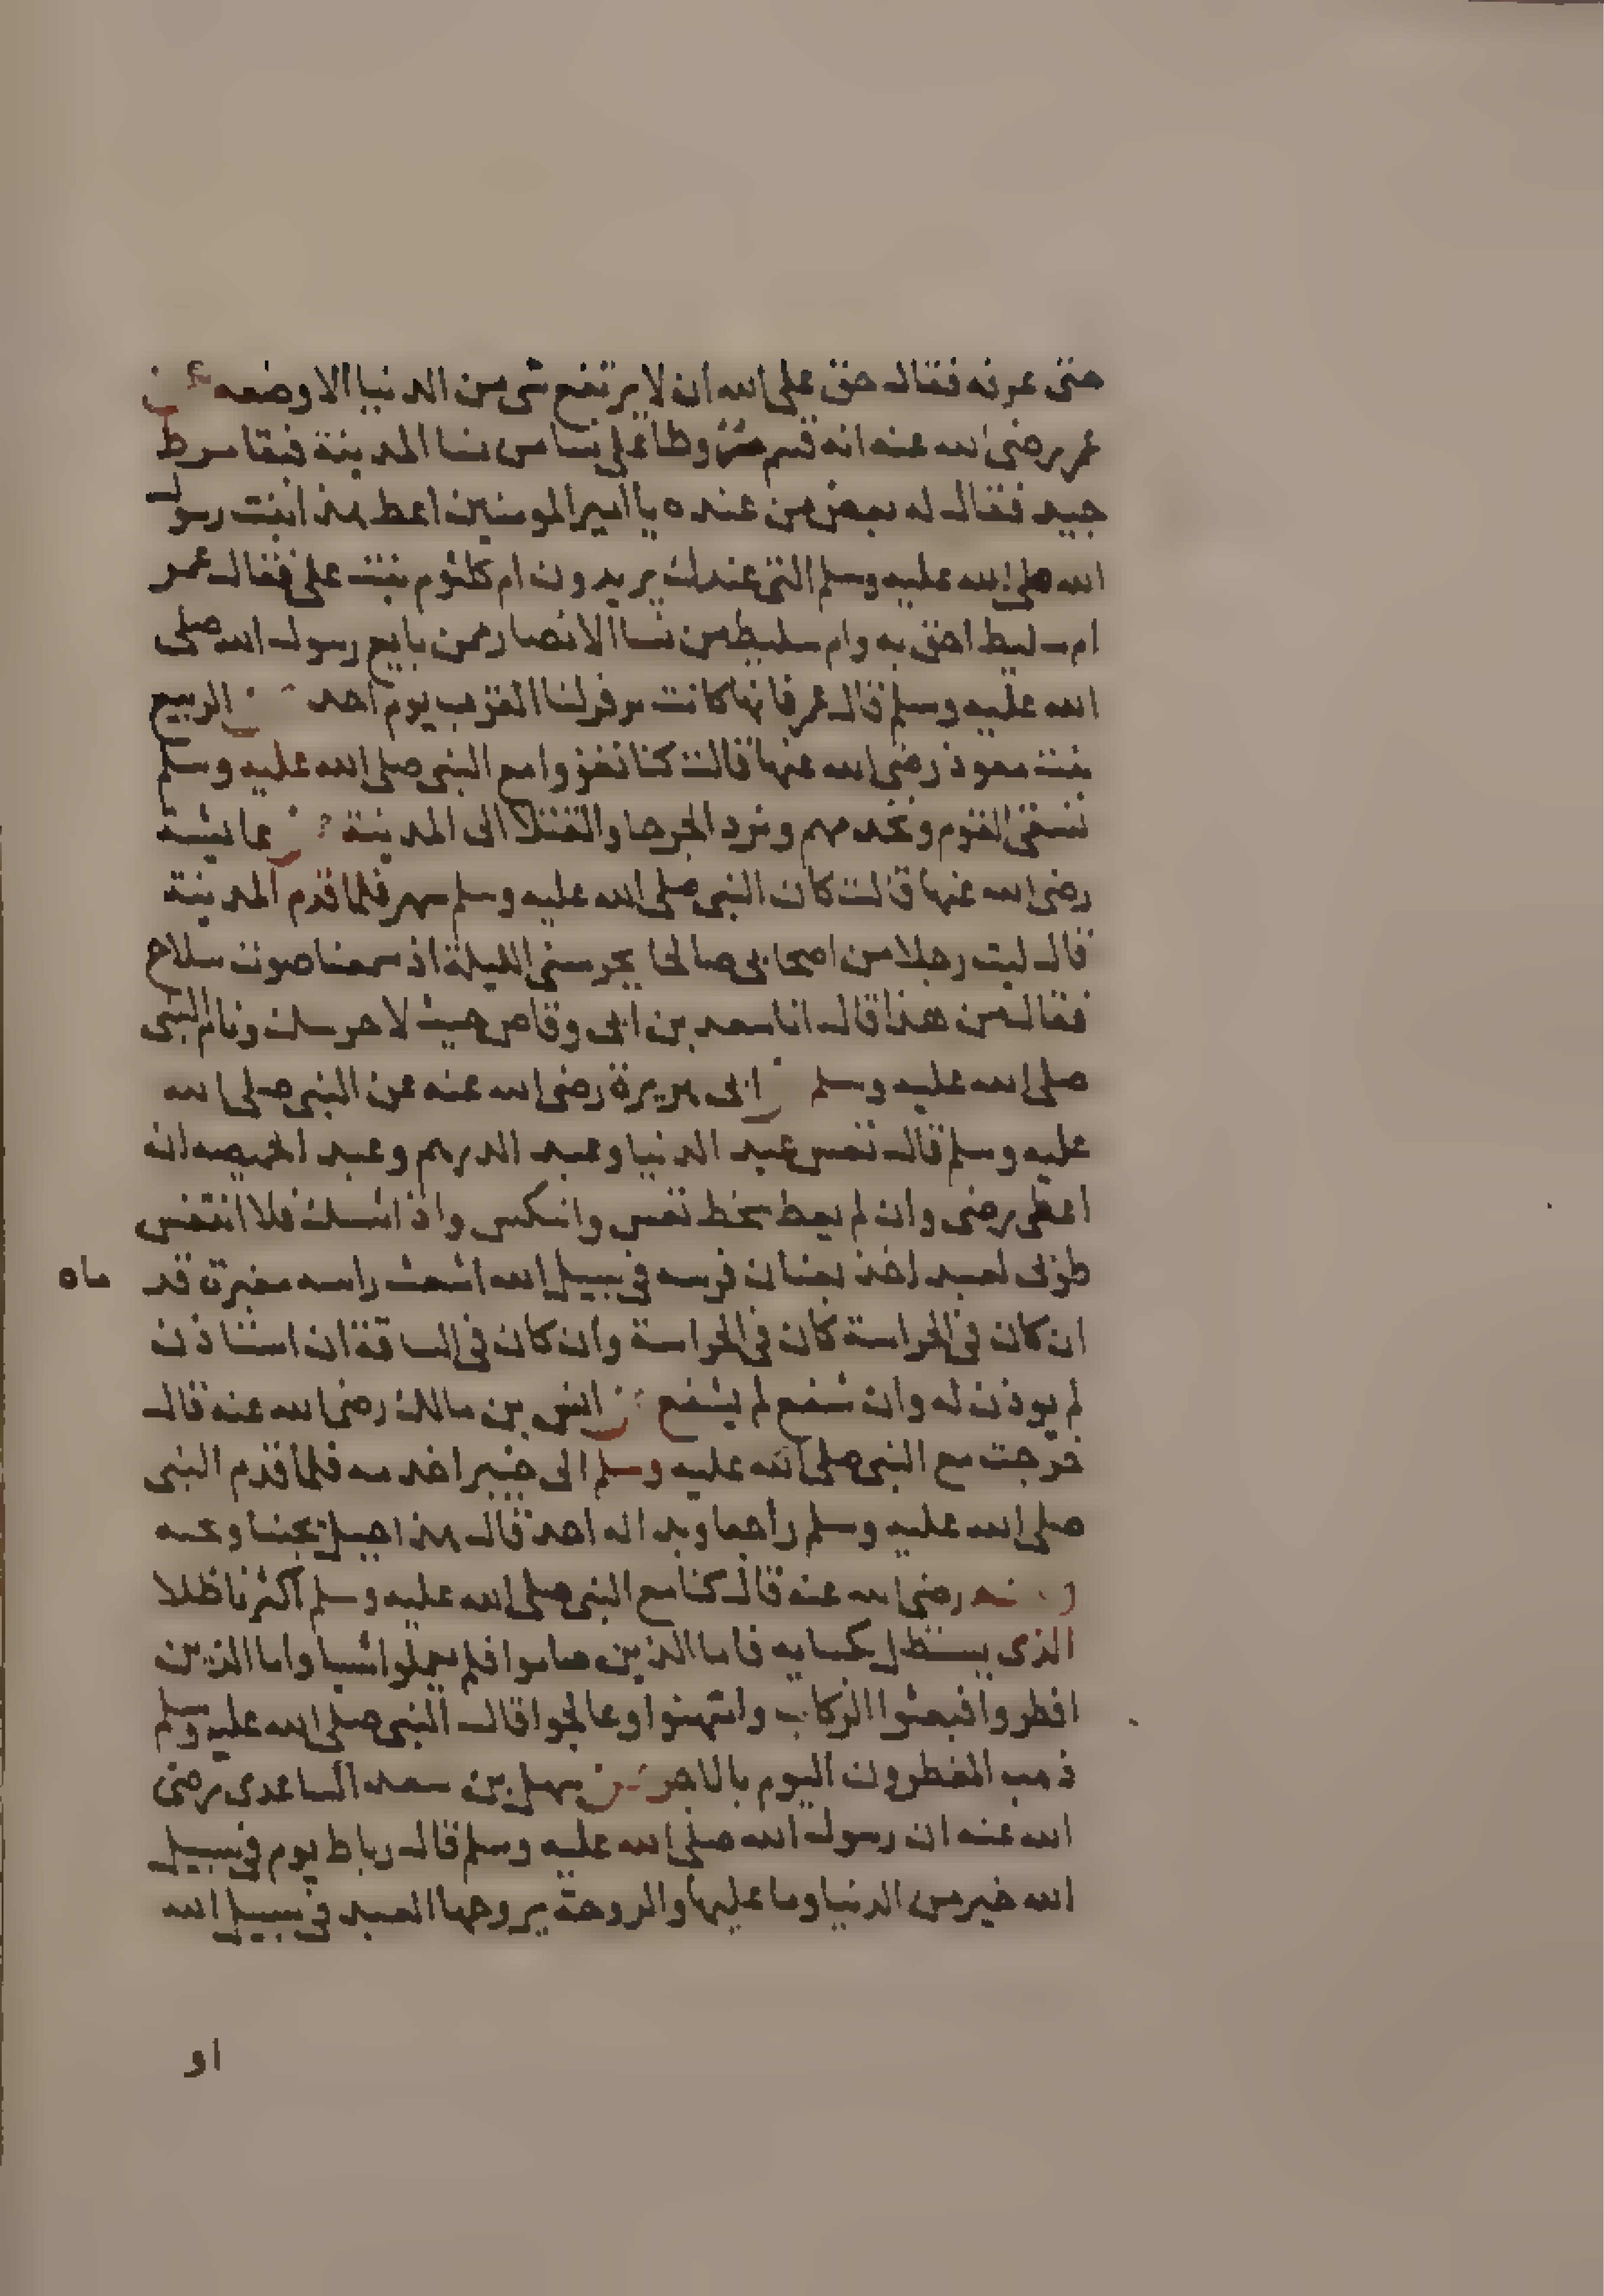 حتى عرفه فقال حق على الله ان لا يرتفع شى من الدنيا الا وضعه عن
عمر رضى الله عنه انه قسم مروطا على نسا من نسا المدينة فبقا مرط
جيد فقال له بعض من عنده يا امير المومنين اعط هذا ابنت رسول
الله صلى الله عليه وسلم التى عندك يريدون ام كلثوم بنت على فقال عمر
ام سليط احق به وام سليط من نسا الانصار ممن بايع رسول الله صلى
الله عليه وسلم قال عمر فانها كانت تزفر لنا القرب يوم احد عن الربيع
بنت معوذ رضى الله عنها قالت كنا نغزوا مع النبى صلى الله عليه وسلم
نسقى القوم ونخدمهم ونرد الجرحا والقتلا الى المدينة عن عايشة
رضى الله عنها قالت كان النبى صلى الله عليه وسلم سهر فلما قدم المدينة
قال ليت رجلا من اصحابى صالحا يحرسنى الليلة اذ سمعنا صوت سلاح
فقال من هذا قال انا سعد بن ابى وقاص جيت لاحرسك ونام النبى
صلى الله عليه وسلم عن ابى هريرة رضى الله عنه عن النبى صلى الله
عليه وسلم قال تعس عبد الدنيا وعبد الدرهم وعبد الخميصه ان
اعطى رضى وان لم يعط سخط تعس وانتكس واذا شيك فلا انتقش
طوبى لعبد اخذ بعنان فرسه فى سبيل الله اشعث راسه مغبرة قد
ماه
ان كان فى الحراسة كان فى الحراسة وان كان فى الساقة ان استاذن
لم يوذن له وان شفع لم يشفع عن انس بن مالك رضى الله عنه قال
خرجت مع النبى صلى الله عليه وسلم الى خيبر اخدمه فلما قدم النبى
صلى الله عليه وسلم راجعا وبدا له احد قال هذا جبل يحبنا ونحبه
وعنه رضى الله عنه قال كنا مع النبى صلى الله عليه وسلم اكثرنا ظلا
الذى يستظل بكسايه فاما الذين صاموا فلم يعملوا شيا واما الذين
افطروا فبعثوا الركاب وامتهنوا وعالجوا قال النبى صلى الله عليه وسلم
ذهب المفطرون اليوم بالاجر عن سهل بن سعد الساعدى رضى
الله عنه ان رسول الله صلى الله عليه وسلم قال رباط يوم فى سبيل
الله خير من الدنيا وما عليها والروحة يروحها العبد فى سبيل الله
او